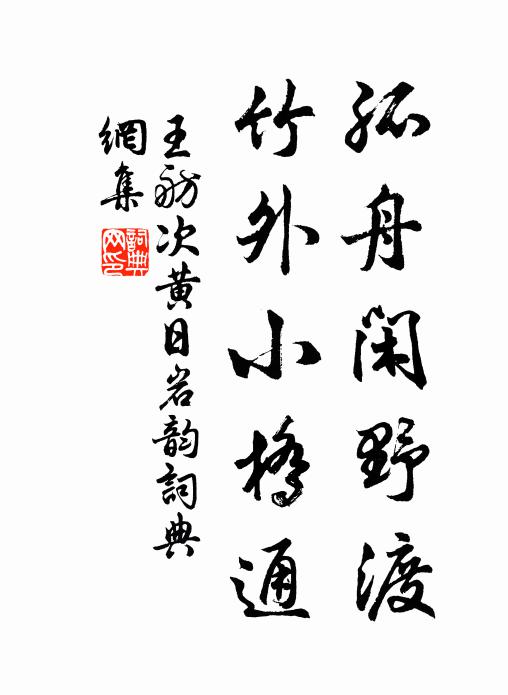 孤舟閑野渡
竹外小橋通
王舫次黄日岩韵詞典
網集
詞典
网印